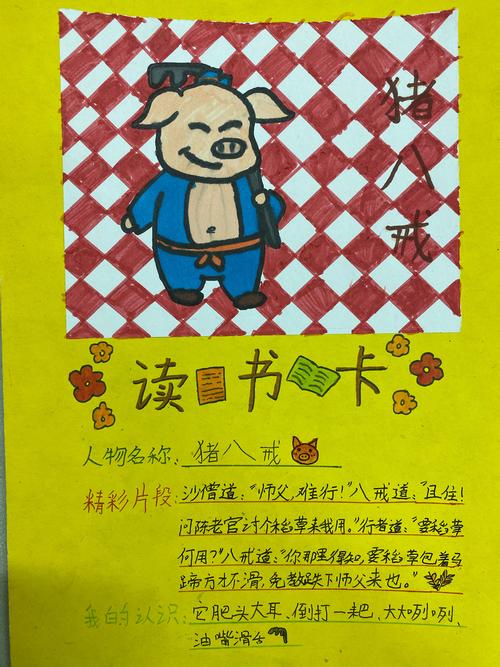 猪八戒
读书卡
人物名称:猪八戒
精彩片段:沙僧道:“师父,难行!”八戒道:“且住!
问陈老官讨个稻草来我用。”行者道:“要稻草
何用?”八戒道:“你那里得知,要稻草包着马
蹄方才不滑,免教跌下师父来也。”
我的认识:它肥头大耳、倒打一耙、大大咧咧、
油嘴滑舌